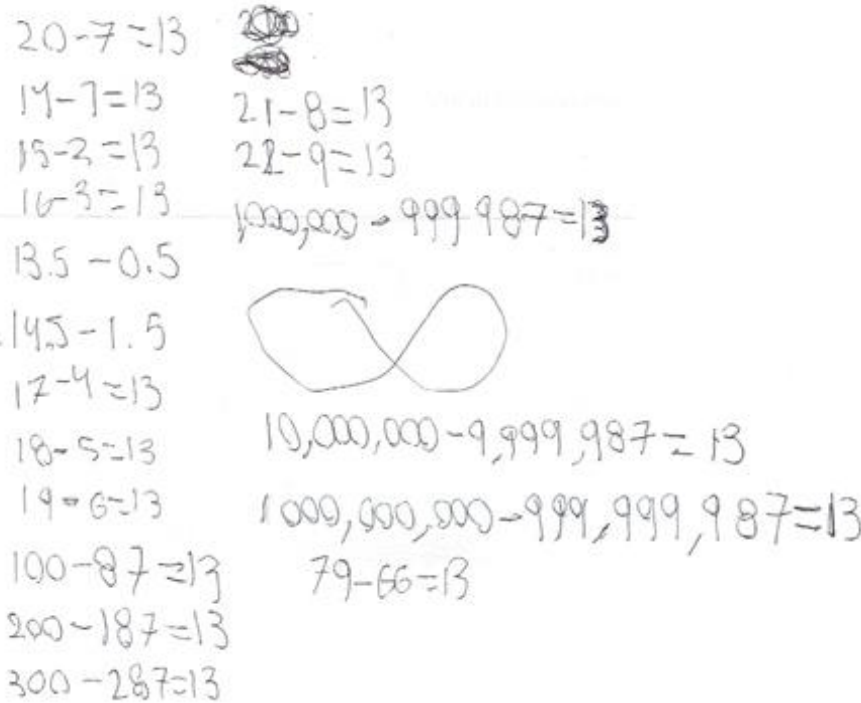 20-7=13
14-1=13
15-2=13
16-3=13
13.5-0.5
14.5-1.5
17-4=13
18-5=13
19-6=13
100-87=13
200-187=13
300-287=13
21-8=13
22-9=13
1000,000-999 987=13
10,000,000-9,999,987=13
1000,000,000-999,999,987=13
79-66=13